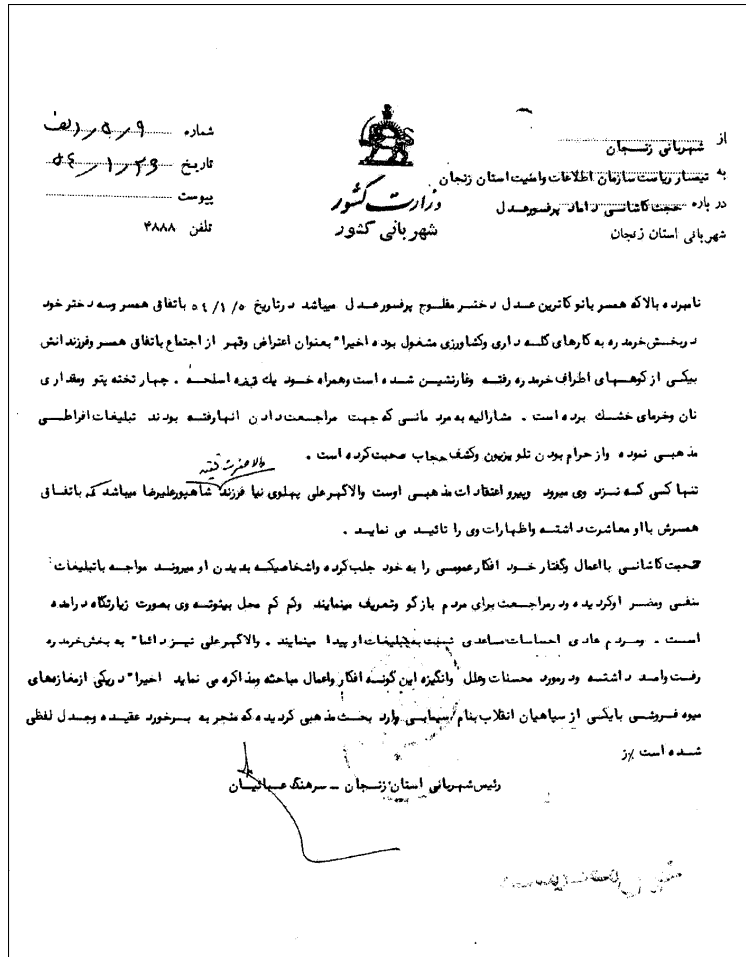 از شهربانی زنجان
به تیمسار ریاست سازمان اطلاعات وامنیت استان زنجان
درباره حجت کاشانی داماد پرفسورعدل
شهربانی استان زنجان
وزارت کشور
شهربانی کشور
شماره ۹/۵/الف
تاریخ ۵۴/۱/۲۳
پیوست
تلفن ۴۸۸۸
نامبرده بالاکه همسر بانو کاترین عدل دختر مفلوج پرفسورعدل میباشد درتاریخ ۵۴/۱/۵ باتفاق همسر وسه دختر خود
دربخش خرمدره به کارهای گله داری وکشاورزی مشغول بوده اخیرا" بعنوان اعتراض وقهر از اجتماع باتفاق همسر وفرزندانش
بیکی از کوههای اطراف خرمدره رفته وغارنشین شده است وهمراه خود یك قبضه اسلحه . چهار تخته پتو ومقداری
نان وخرمای خشك برده است . مشارالیه به مردمانی که جهت مراجعت دادن انهارفته بودند تبلیغات افراطی
مذهبی نموده واز حرام بودن تلویزیون وکشف حجاب صحبت کرده است .
والاحضرت فقید
تنها کسی که نزد وی میرود وپیرو اعتقادات مذهبی اوست والاگهرعلی پهلوی نیا فرزند شاهپورعلیرضا میباشد که باتفاق
همسرش بااو معاشرت داشته واظهارات وی را تائید می نماید .
حجت کاشانی بااعمال وگفتار خود افکارعمومی را به خود جلب کرده واشخاصیکه بدیدن او میروند مواجه باتبلیغات
منفی ومضر اوگردیده ودرمراجعت برای مردم بازگو وتعریف مینمایند وکم کم محل بیتوته وی بصورت زیارتگاه درامده
است . ومردم عادی احساسات مساعدی نسبت به تبلیغات او پیدا مینمایند . والاگهرعلی نیز دائما" به بخش خرمدره
رفت وامد داشته ودرمورد محسنات وعلل وانگیزه این گونه افکار واعمال مباحثه ومذاکره می نماید اخیرا" دریکی ازمغازه های
میوه فروشی بایکی از سپاهیان انقلاب بنام سیمابی وارد بحث مذهبی گردیده که منجر به برخورد عقیده وجدل لفظی
شده است /ز
رئیس شهربانی استان زنجان ـ سرهنگ